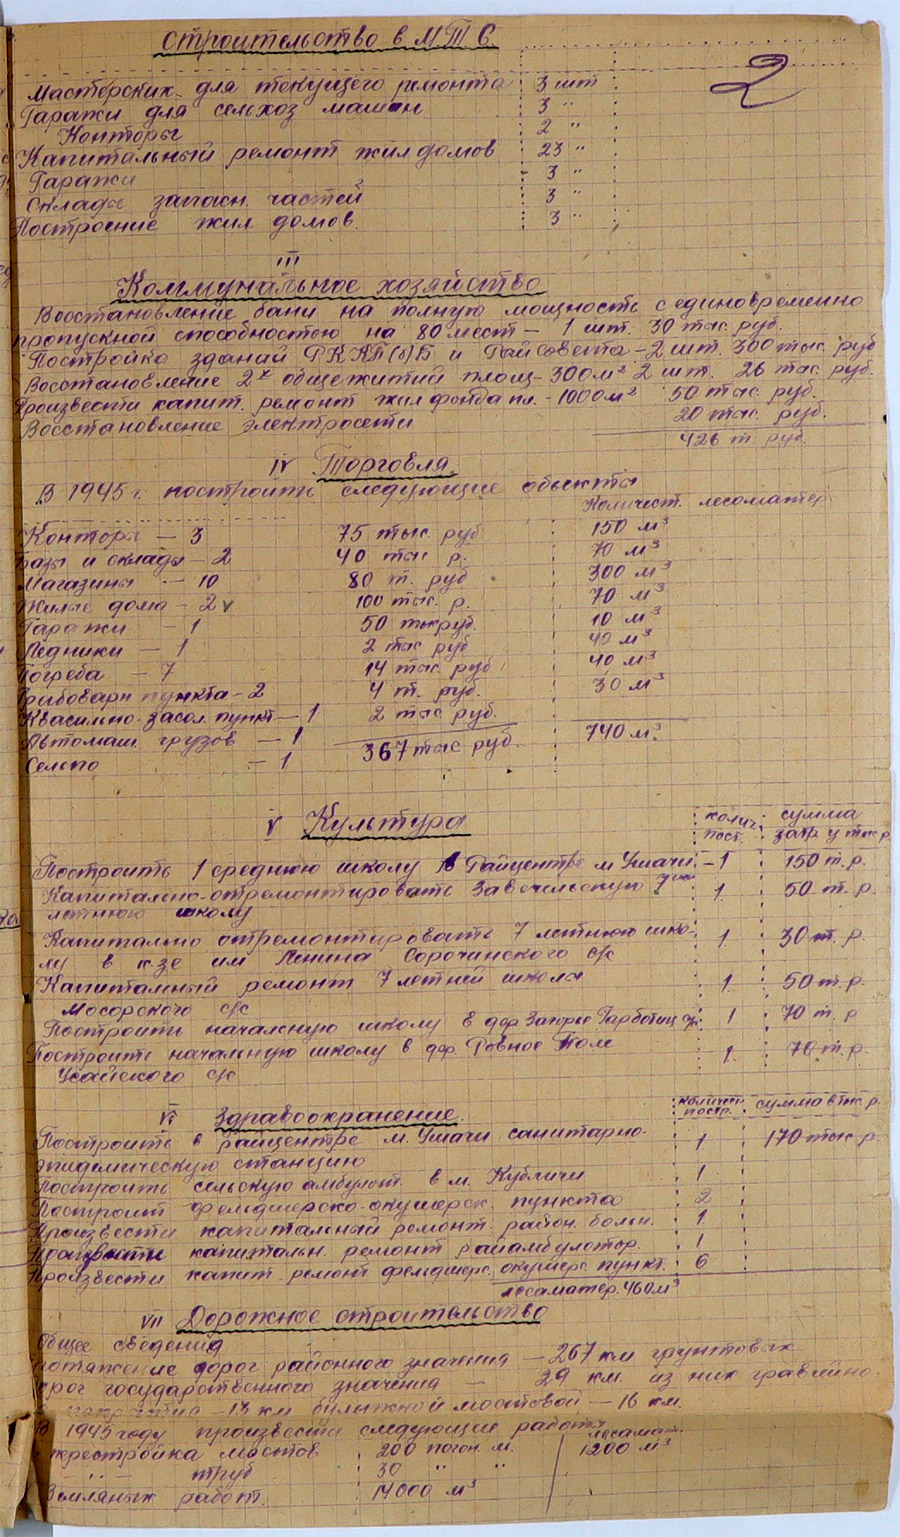 Строительство в МТС
2
Мастерских для текущего ремонта 3 шт
Гаражи для сельхоз машин 3 "
Конторы 2 "
Капитальный ремонт жил домов 23 "
Гаражи - 3 "
Склады запасн. частей 3 "
Построение жил. домов. 3 "
III
Коммунальное хозяйство
Восстановление бани на полную мощность с единовременно
пропускной способностью на 80 мест - 1 шт. 30 тыс. руб.
Постройка зданий РК КП(б)Б и Райсовета - 2 шт. 300 тыс. руб
Восстановление 2х общежитий площ - 300 м² 2 шт. 26 тыс. руб.
Произвести капит. ремонт жилфонда пл. - 1000 м² 50 тыс руб.
Восстановление электросети 20 тыс. руб.
426 т. руб.
IV Торговля.
В 1945 г. построить следующие объекты
Количест. лесоматер.
Конторы - 3 75 тыс. руб 150 м³
Базы и склады - 2 40 тыс р. 70 м³
Магазины - 10 80 т. руб 300 м³
Жилые дома - 2 v 100 тыс. р. 70 м³
Гаражи - 1 50 тыс руб. 10 м³
Ледники - 1 2 тыс руб 40 м³
Погреба - 7 14 тыс. руб 40 м³
Грибоварн пункта - 2 4 т. руб. 30 м³
Квасильно-засол. пункт - 1 2 тыс руб.
Автомаш. грузов - 1 367 тыс руб. 740 м³.
Сельпо - 1
V Культура
колич. пост. сумма затр. у тыс р
Построить 1 среднюю школу в Райцентре м Ушачи - 1 150 т. р.
Капитально отремонтировать Завечельскую 7ми 1. 50 т. р.
летнюю школу
Капитально отремонтировать 7 летнюю шко- 1. 30 т. р.
лу в к-зе им Ленина Сорочинского с/с
Капитальный ремонт 7 летней школы 1. 50 т. р.
Мосорского с/с
Построить начальную школу в дер. Загорье 1 70 т. р
Построить начальную школу в дер. Ровное Поле 1. 70 т. р.
Усайского с/с
VI Здравоохранение.
количест. постр. сумма в тыс. р.
Построить в райцентре м. Ушачи санитарно- 1 170 тыс. р.
эпидемическую станцию
Построить сельскую амбулат. в м. Кубличи 1
Построить фельдшерско-акушерск. пункта 2
Произвести капитальный ремонт район. больн. 1.
Произвести капитальн. ремонт райамбулатор. 1
Произвести капит. ремонт фельдшерс. акушерс. пункт. 6
лесоматер. 460 м³
VII Дорожное строительство
Общее сведения
протяжение дорог районного значения - 267 км грунтовых
дорог государственного значения - 29 км. из них гравийно
покрытия - 13 км булыжной мостовой - 16 км.
В 1945 году произвести следующие работы
лесомат.
Перестройка мостов 200 погон. м. 1200 м³
" труб 30 " "
Земляных работ. 14000 м³